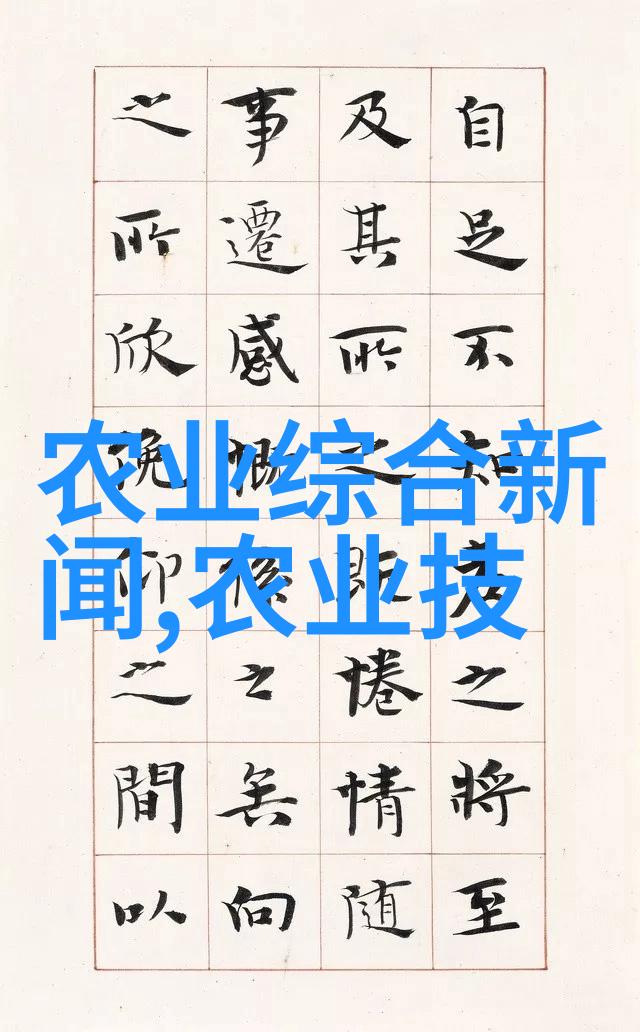 自足不知老之將至
及其所之既惓情随
事遷感慨係之矣向
之所欣俛仰之間以
农业综合新
闻,农业技